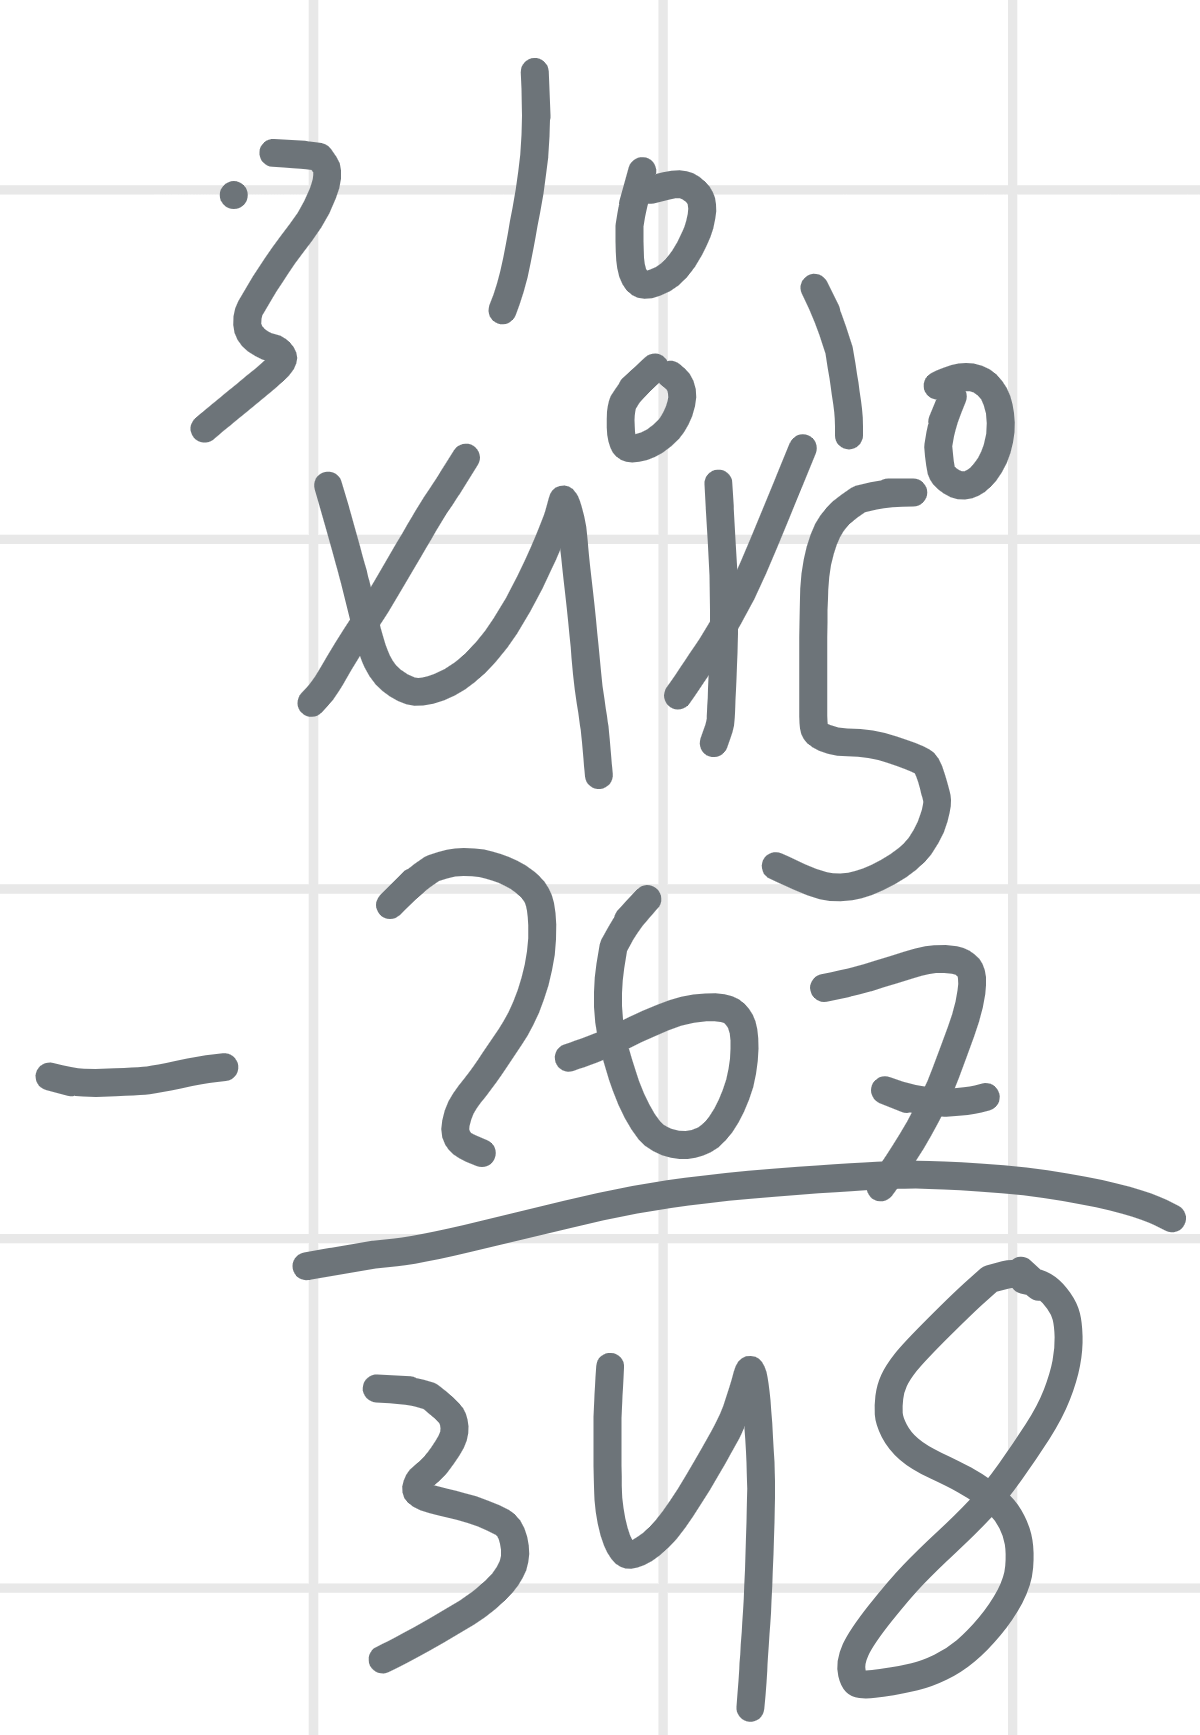 3 10
0 10
415
- 267
348